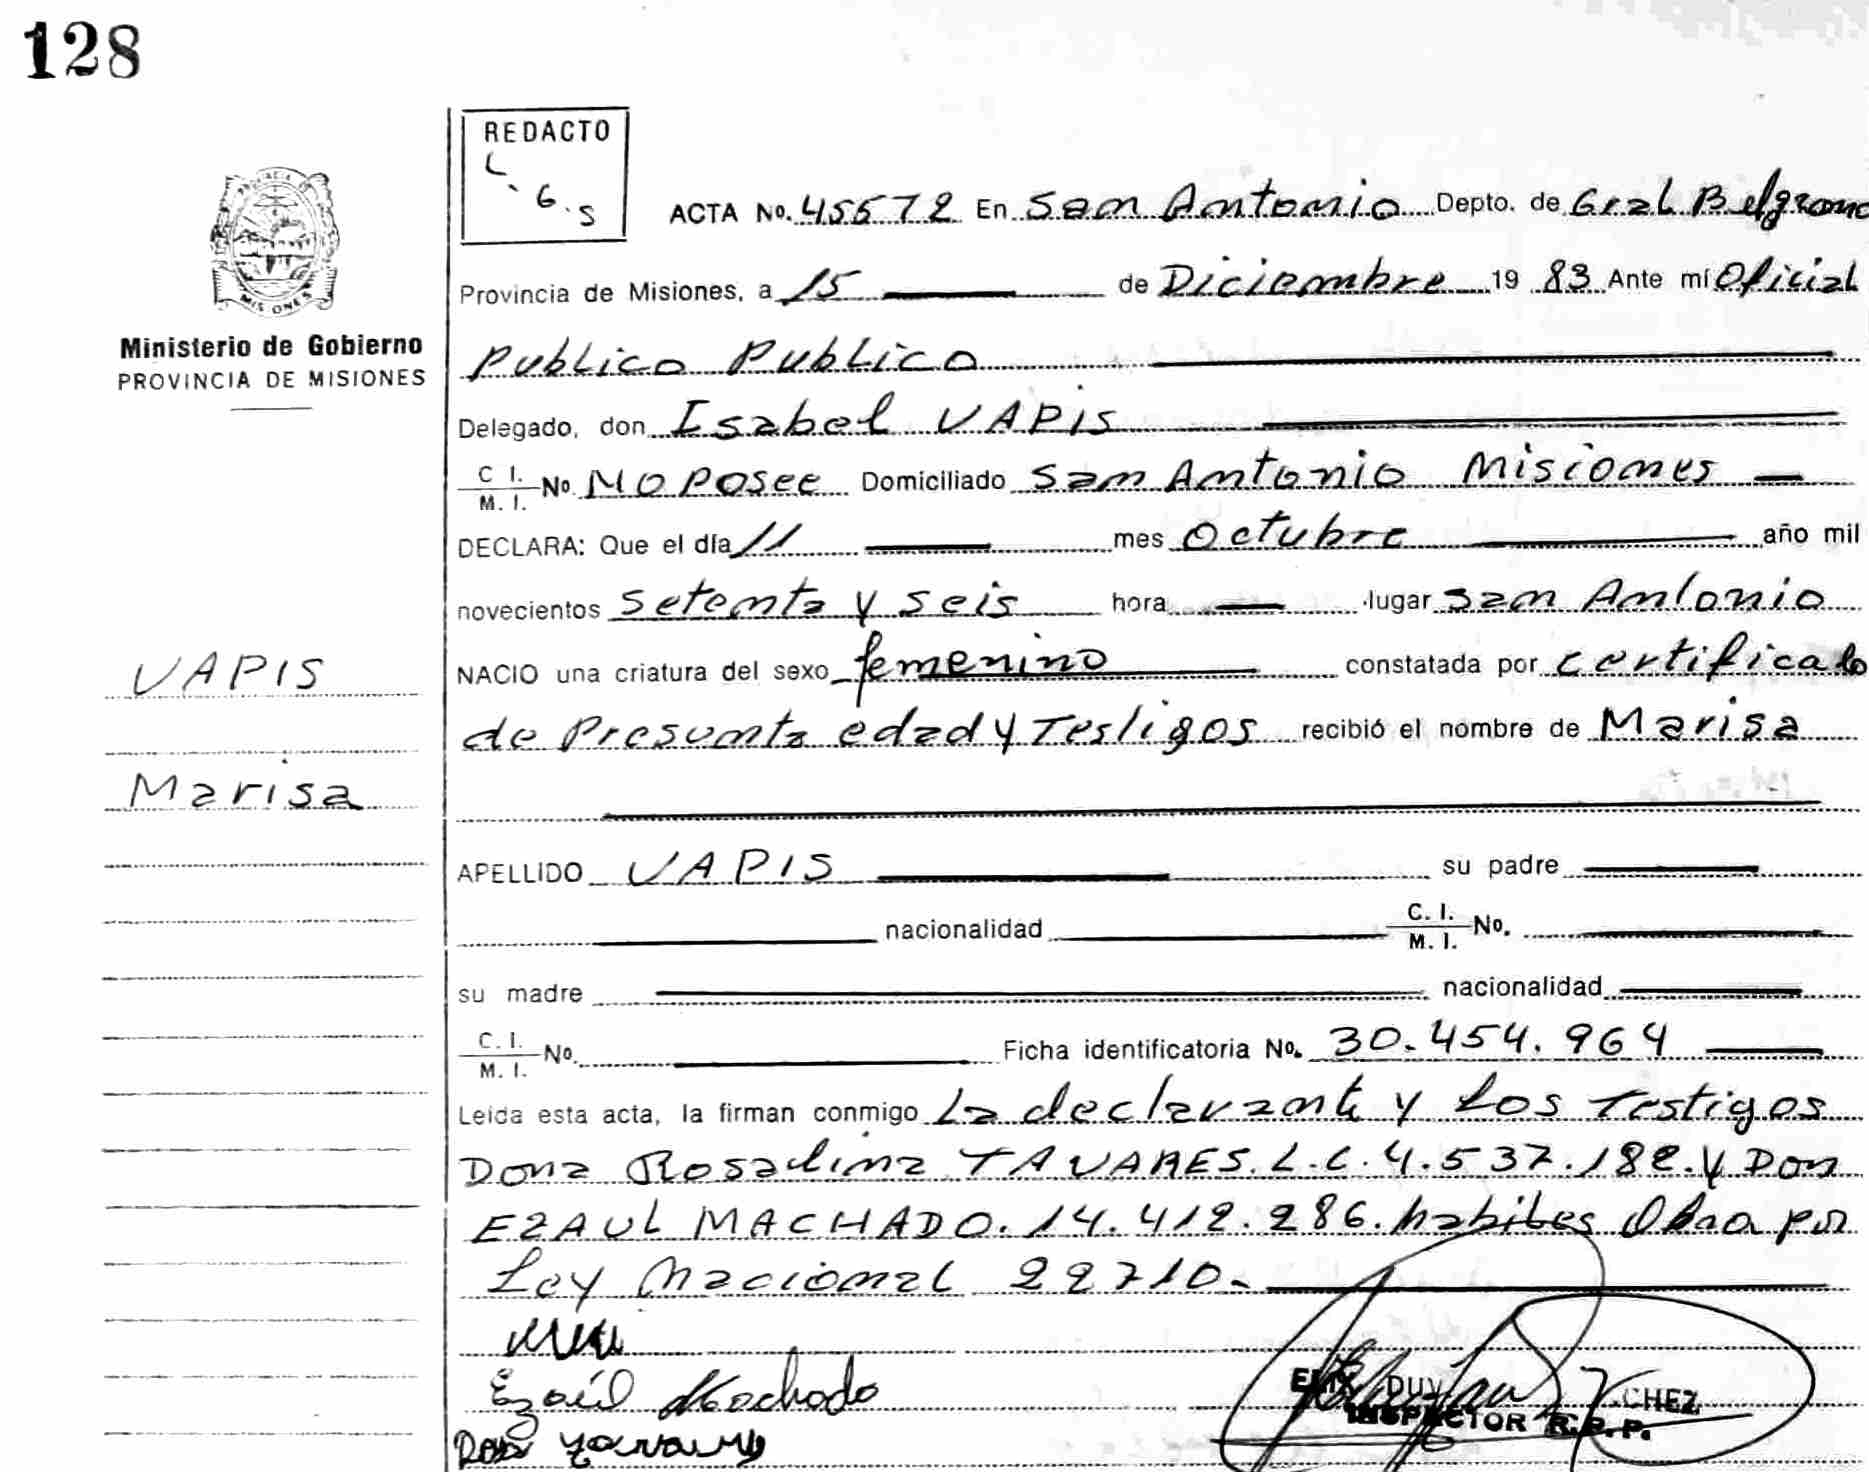 128
REDACTO
L. G. S
ACTA No. 45572 En San Antonio Depto. de Gral Belgrano
MISIONES
Provincia de Misiones, a 15 de Diciembre 19 83 Ante mí Oficial
Ministerio de Gobierno
PROVINCIA DE MISIONES
Publico Publico
Delegado, don Isabel VAPIS
C. I. M. I. No. NO Posee Domiciliado San Antonio Misiones
DECLARA: Que el día 11 mes Octubre año mil
novecientos Setenta y seis hora lugar San Antonio
VAPIS
NACIO una criatura del sexo femenino constatada por certificado
de Presunta edad y Testigos recibió el nombre de Marisa
Marisa
APELLIDO VAPIS su padre
nacionalidad C. I. M. I. No.
su madre nacionalidad
C. I. M. I. No. Ficha identificatoria No. 30.454.964
Leida esta acta, la firman conmigo La declarante y Los Testigos
Dona Rosalina TAVARES. L.C. 4.537.182. y Don
EZAUL MACHADO. 14.412.286. habiles Obra por
Ley Nacional 22710-
Ezaúl Machado
INSPECTOR R.P.P.